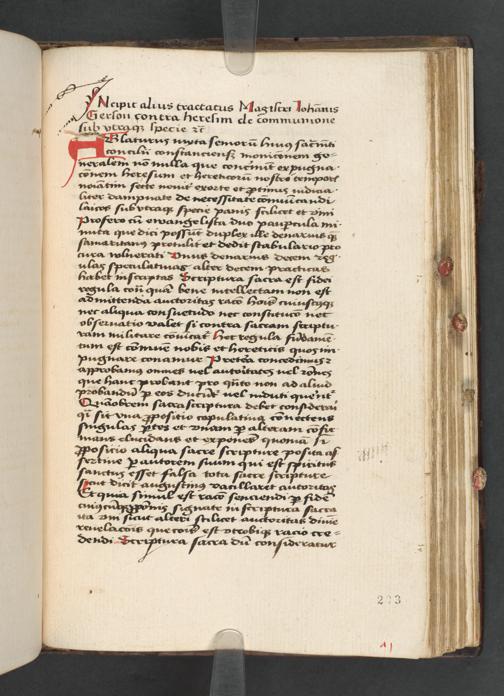 Incipit alius tractatus Magistri Iohannis
Gerson contra heresim de communione
sub utraque specie etc
Relaturus iuxta seniorum huius sacrati
concilii constanciensis monicionem ge-
neralem non nulla que concernunt expugna-
cionem heresum et hereticorum nostro tempore
noviatim secte noviter exorte et per iudicia-
liter dampnate de necessitate communicandi
laicos sub utraque specie panis scilicet et vini
Profero cum evangelista duo paupercula mi-
nuta que dici possunt duplex ille denarius quem
samaritanus protulit et dedit stabulario pro
cura vulnerati Unus denarius decem reg-
ulas speculativas alter decem practicas
habet inscriptas Scriptura sacra est fidei
regula contra quam bene intellectam non est
admittenda auctoritas racio hominis cuiuscumque
nec aliqua consuetudo nec constitucio nec
observatio valet si contra sacram scriptu-
ram militare convincatur Hec regula fundamen-
tum est commune nobis et hereticis quos im-
pugnare conamur Preterea concedimus
approbamus omnes vel auctoritates vel raciones
que hanc probant pro quanto non ad aliud
probandum per eos ducuntur vel induci queunt
Quamobrem sacra scriptura debet considerari
quasi sit una propositio copulativa connectens
singulas partes et unam per alteram confir-
mans elucidans et exponens quoniam si
propositio aliqua sacre scripture posita as-
sertive per autorem suum qui est spiritus
sanctus esset falsa tota sacre scripture
sicut dicit augustinus vacillaret autoritas
Et qua simul est racio senciendi per fidem
cuiuscumque propositionis signate in scriptura sacra
ita in sicut alteri scilicet auctoritas divine
revelacionis que eius est utrobique racio cre-
dendi Scriptura sacra dum consideratur
203